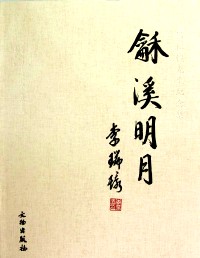 龢溪明月
李瑞環
文物出版社